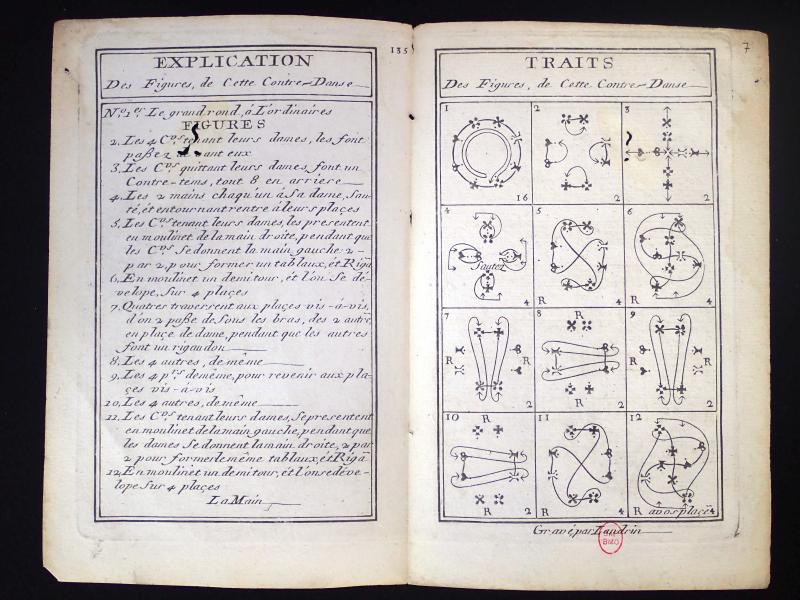 135
EXPLICATION
Des Figures, de Cette Contre-Danse
N.º 1.er Le grand rond, á L'ordinaires
FIGURES
2. Les 4 C.ers tenant leurs dames, les font
paßez devant eux
3. Les C.ers quittant leurs dames, font un
Contre-tems, tout 8 en arriere
4. Les 2 mains chaqu'un á Sa dame, Sau-
té, ét en tournant rentre á leurs plaçes
5. Les C.ers tenant leurs dames, les presentent
en moulinet de la main droite, pendant que
les C.ers Se donnent la main gauche, 2-
par 2, pour former un tablaux, ét Riga
6. En moulinet un demi tour, ét l'on Se dé-
velope, Sur 4 plaçes
7. Quatres traversent aux plaçes vis-á-vis,
d'on 2 paße de Sous les bras, des 2 autre,
en plaçe de dame, pendant que les autres
font un rigaudon
8. Les 4 autres, de même
9. Les 4 p.rs demême, pour revenir aux pla-
çes vis-á-vis
10. Les 4 autres, de même
11. Les C.ers tenant leurs dames, Se presentent
en moulinet de la main gauche, pendant que
les dames Se donnent la main droite, 2 par
2 pour former le même tablaux, ét Riga
12. En moulinet un demi tour, ét l'on se déve-
lope Sur 4 plaçes
La Main
7
TRAITS
Des Figures, de Cette Contre-Danse
1
16
2
2
3
2
4
Sautez
4
5
R
4
6
R
4
7
R
R
2
8
R
R
2
9
R
R
2
10
R
R
2
11
R
4
12
R
a vos plaçes
4
Gravé par Landrin
BMO